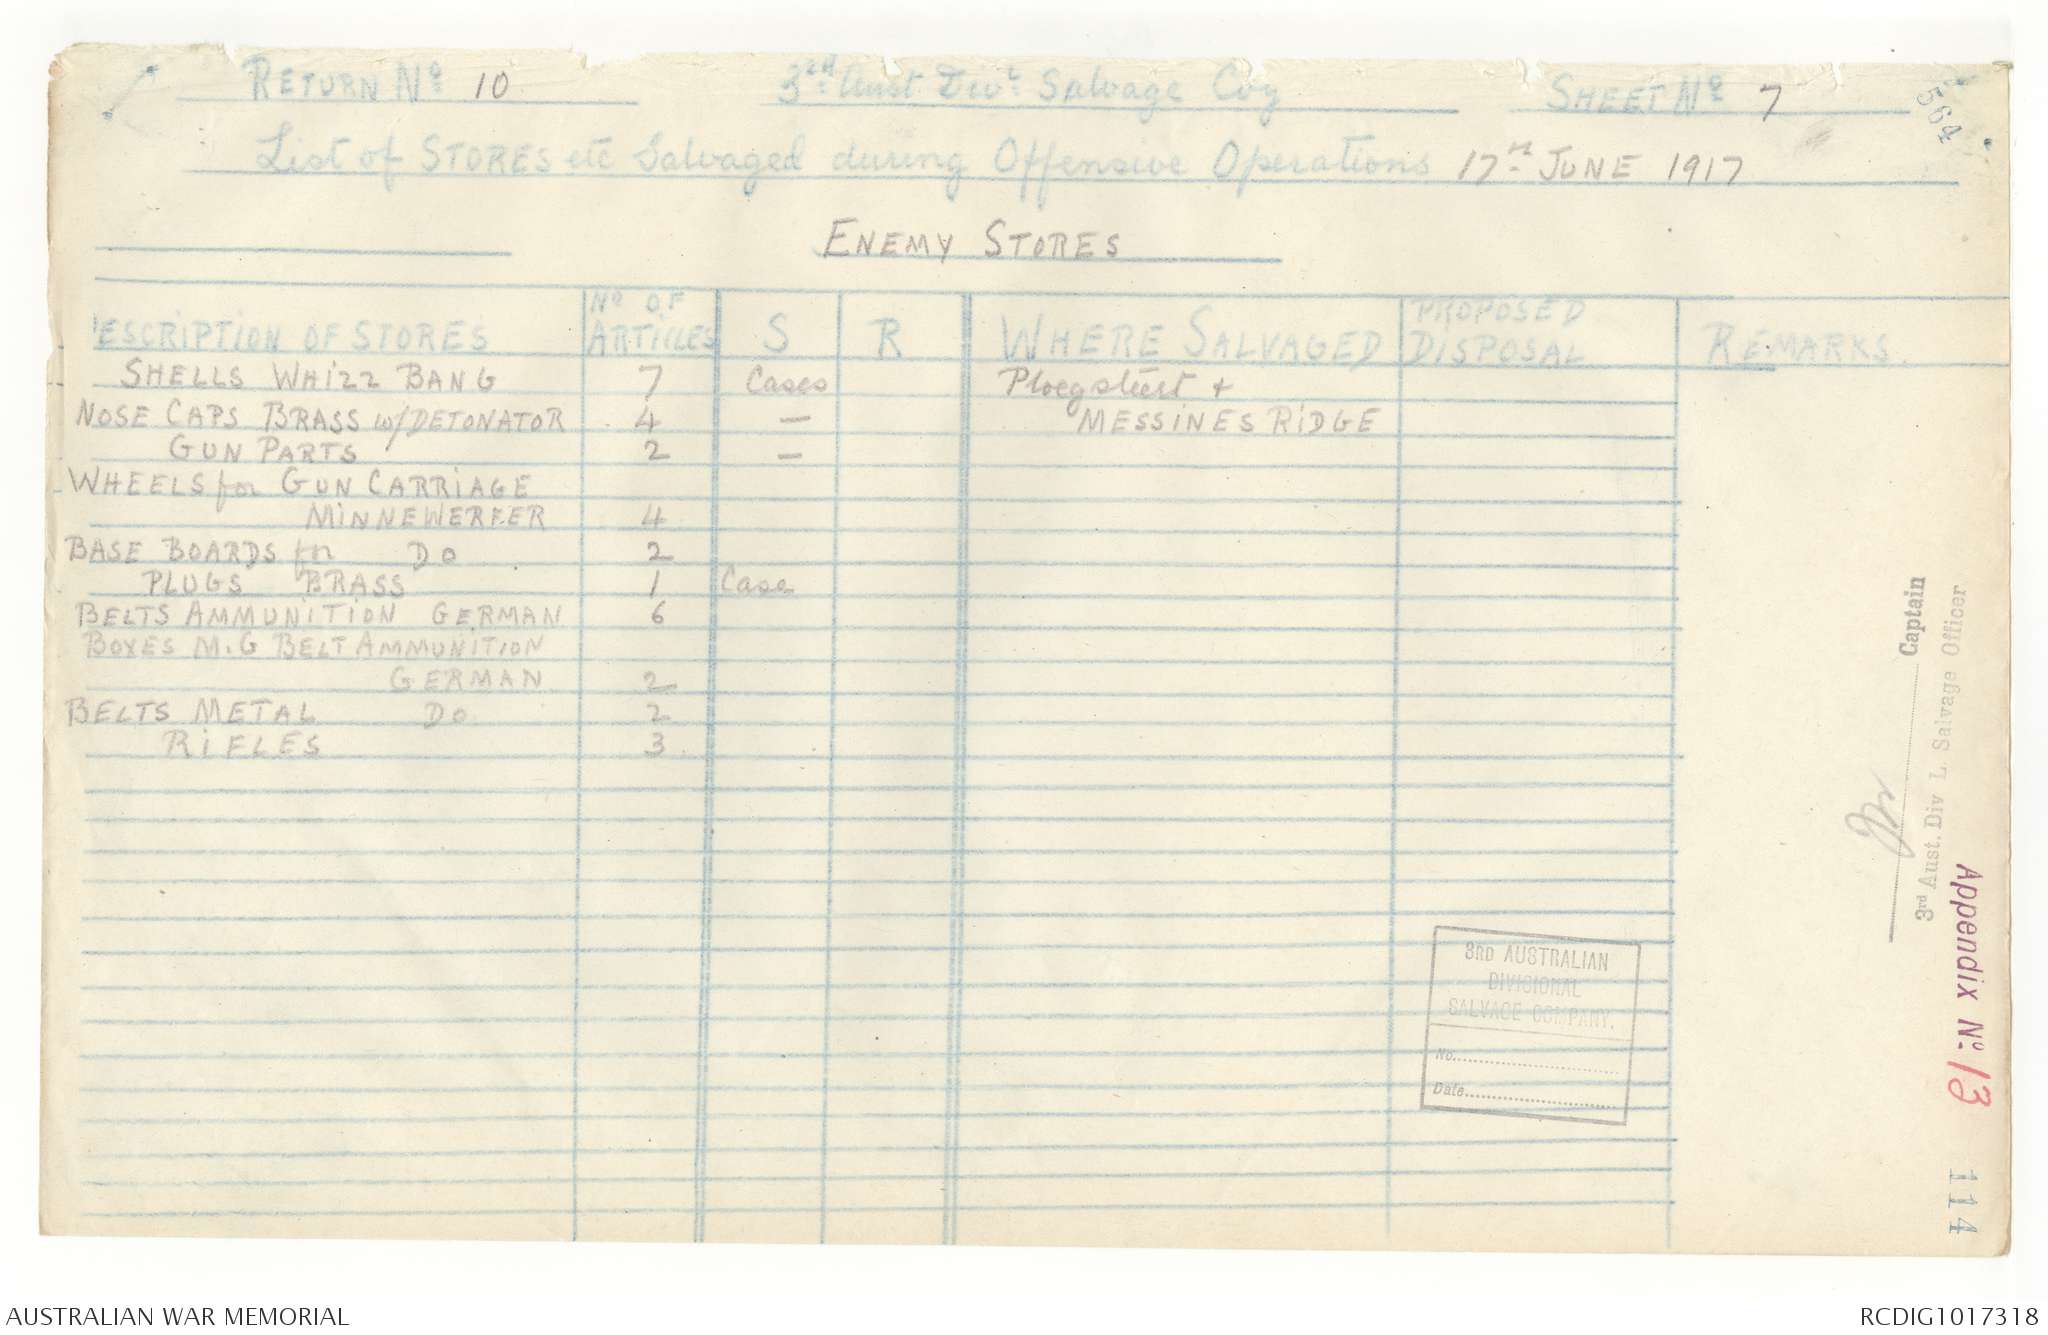 RETURN Nº 10 3rd Aust Divl Salvage Coy SHEET Nº 7
564
List of STORES etc Salvaged during Offensive Operations 17TH JUNE 1917
ENEMY STORES
ESCRIPTION OF STORES Nº OF ARTICLES S R WHERE SALVAGED PROPOSED DISPOSAL REMARKS.
SHELLS WHIZZ BANG 7 Cases Ploegsteert +
NOSE CAPS BRASS w/DETONATOR 4 — MESSINES RIDGE
GUN PARTS 2 —
WHEELS for GUN CARRIAGE
MINNEWERFER 4
BASE BOARDS for DO 2
PLUGS BRASS 1 Case
BELTS AMMUNITION GERMAN 6
BOXES M.G BELT AMMUNITION
GERMAN 2
BELTS METAL DO 2
RIFLES 3
Captain
3rd Aust. Div L. Salvage Officer
Appendix Nº 13
114
3RD AUSTRALIAN
DIVISIONAL
SALVAGE COMPANY.
No.
Date
AUSTRALIAN WAR MEMORIAL RCDIG1017318